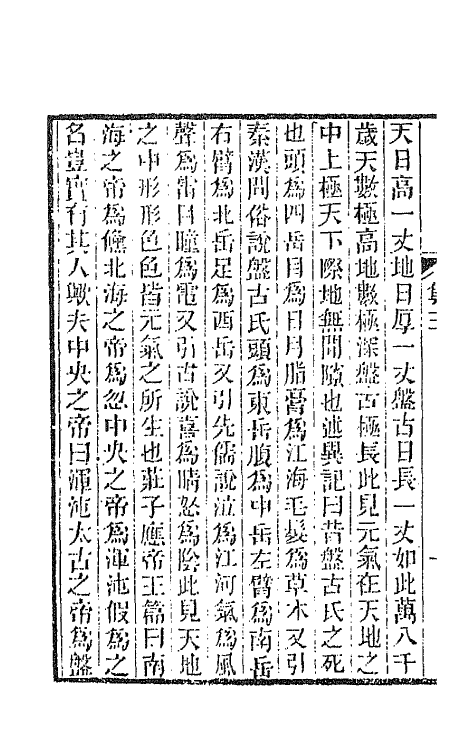 天日高一丈地日厚一丈盤古日長一丈如此萬八千
歲天數極高地數極深盤古極長此見元氣在天地之
中上極天下際地無間隙也述異記曰昔盤古氏之死
也頭為四岳目為日月脂膏為江海毛髮為草木又引
秦漢間俗說盤古氏頭為東岳腹為中岳左臂為南岳
右臂為北岳足為西岳又引先儒說泣為江河氣為風
聲為雷目瞳為電又引古說喜為晴怒為陰此見天地
之中形形色色皆元氣之所生也莊子應帝王篇曰南
海之帝為儵北海之帝為忽中央之帝為渾沌假為之
名豈實有其人歟夫中央之帝曰渾沌太古之帝為盤